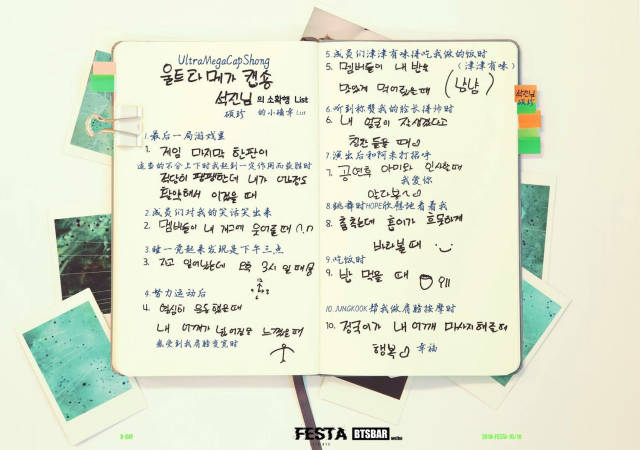 UltraMegaCapShong
울트라메가 캡숑
석진님의 소확행 List
硕珍 的小确幸 List
1.最后一局游戏里
1. 게임 마지막 한판이
适当的不分上下时我起到一定作用而获胜时
적당히 팽팽한데 내가 어느정도
활약해서 이겼을 때
2.成员们对我的笑话笑出来
2. 멤버들이 내 개그에 웃어줄때 ∩.∩
3.睡一觉起来发现是下午三点
3. 자고 일어났는데 오후 3시 일때
4.努力运动后
4. 열심히 운동했을때
내 어깨가 넓어짐을 느꼈을때
感受到我肩膀变宽时
5.成员们津津有味得吃我做的饭时
5. 멤버들이 내 밥을 (津津有味)
맛있게 먹어줬을때 (냠냠)
6.听到称赞我的脸长得帅时
6. 내 얼굴이 잘생겼다고
칭찬 들을 때
7.演出后和阿米打招呼
7. 공연후 아미와 인사할때
我爱你
8.跳舞时HOPE欣慰地看着我
8. 춤추는데 홉이가 흐뭇하게
바라볼때
9.吃饭时
9. 밥 먹을 때
10.JUNGKOOK 帮我做肩膀按摩时
10. 정국이가 내 어깨 마사지해줄때
행복 幸福
석진님
硕珍
D-DAY
FESTA
BTSBAR weibo
2018-FESTA-10/10